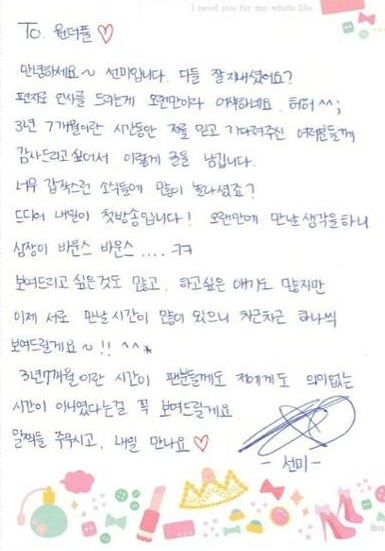 I need you for my whole life.
To. 원더풀 ♡
안녕하세요~ 선미입니다. 다들 잘 지내셨어요?
편지로 인사를 드리는게 오랜만이라 어색하네요. 허허^^;
3년 7개월이란 시간동안 저를 믿고 기다려주신 여러분들께
감사드리고 싶어서 이렇게 글을 남깁니다.
너무 갑작스런 소식들에 많이 놀라셨죠?
드디어 내일이 첫방송입니다! 오랜만에 만날 생각을 하니
심장이 바운스 바운스 .... ㅋㅋ
보여드리고 싶은것도 많고, 하고싶은 얘기도 많지만
이제 서로 만날 시간이 많이 있으니 차근차근 하나씩
보여드릴게요~!! ^^*
3년7개월이란 시간이 팬분들께도 저에게도 의미없는
시간이 아니였다는걸 꼭 보여드릴게요.
일찍들 주무시고, 내일 만나요 ♡
- 선미 -